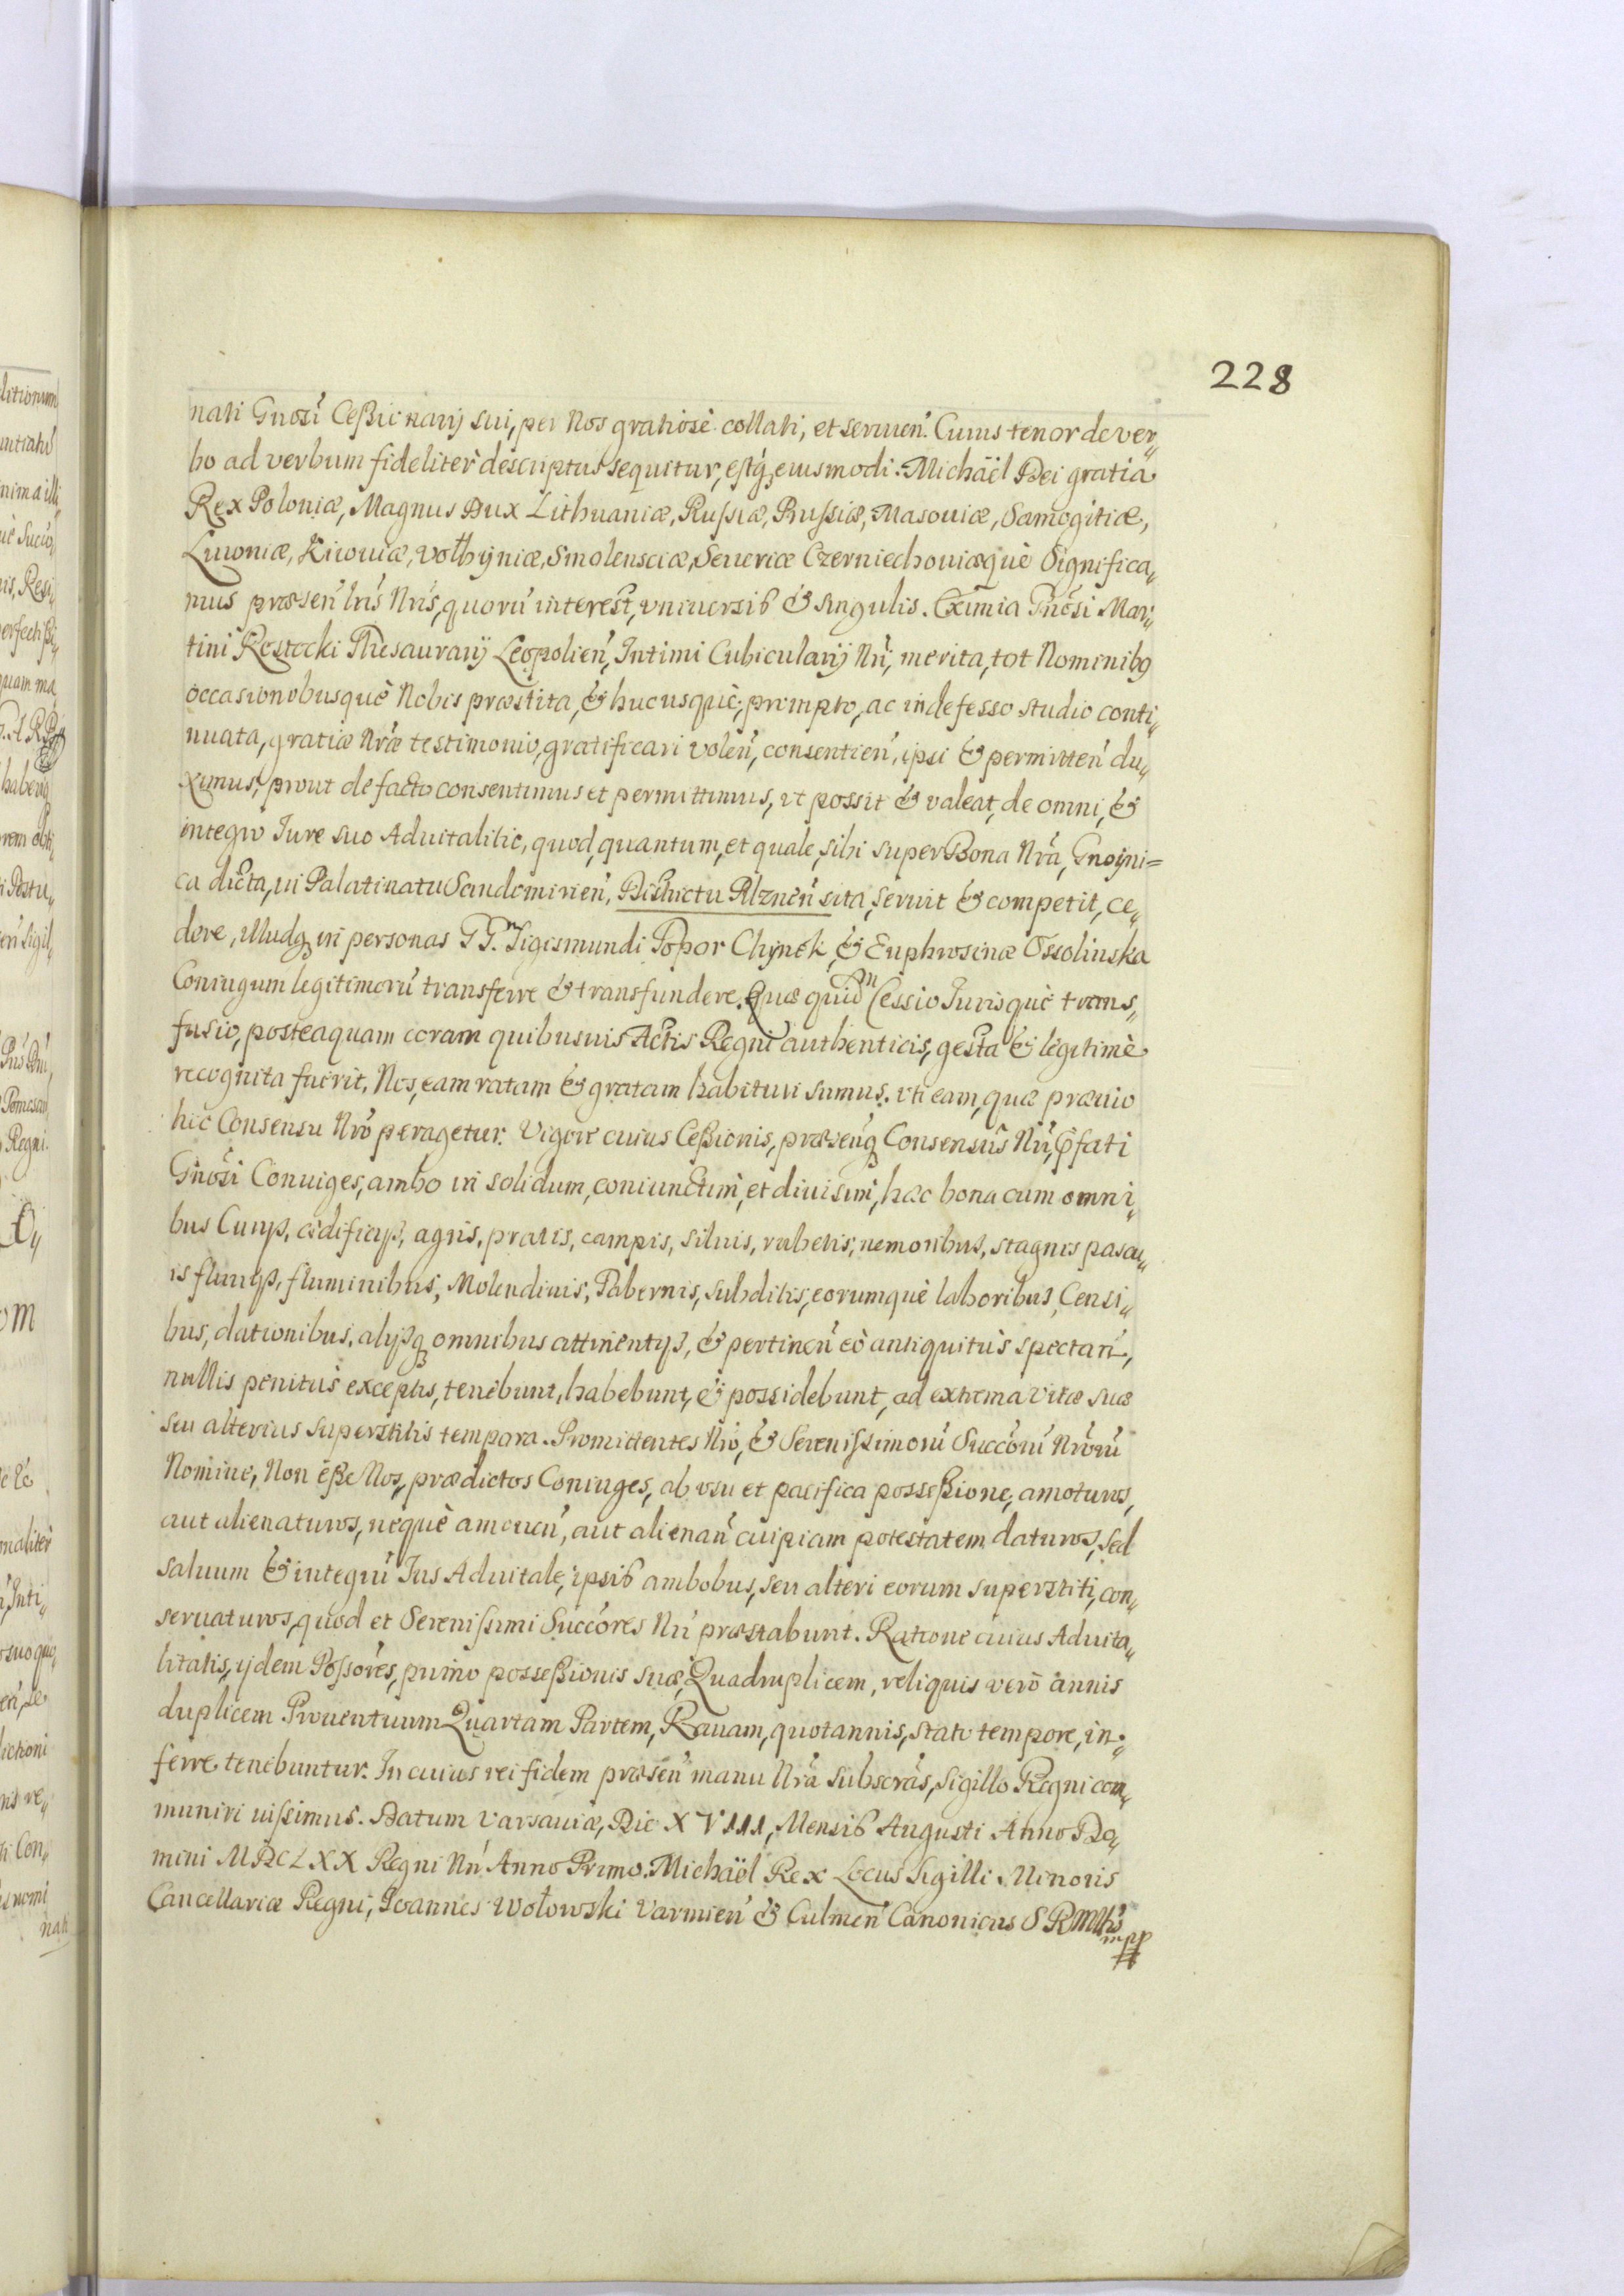 228
nati Gnosi Cessionarij sui, per Nos gratiosè collati, et seruien. Cuius tenor de ver„
bo ad verbum fideliter descriptus sequitur, estq; eiusmodi. Michaël Dei gratia
Rex Poloniæ, Magnus Dux Lithuaniæ, Russiæ, Prussiæ, Masouiæ, Samogitiæ,
Liuoniæ, Kiiouiæ, Volhyniæ, Smolensciæ, Seueriæ Czerniechouiæquè Significa„
mus præsen lris Nris, quorũ interest, vniuersis & singulis. Eximia Gnosi Mar„
tini Rostocki Thesaurarij Leopolien, Intimi Cubicularij Nri, merita, tot Nominibq
occasionibusquè Nobis præstita, & hucusquè, prompto, ac indefesso studio conti„
nuata, gratiæ Nræ testimonio, gratificari volen, consentien, ipsi & permitten du„
ximus, prout de facto consentimus et permittimus, vt possit & valeat, de omni, &
integro Iure suo Aduitalitio, quod, quantum, et quale, sibi super Bona Nra, Gnoyni=
ca dicta, in Palatinatu Sandomirien, Districtu Pilznen sita, seruit & competit, ce„
dere, illudq; in personas GG. Sigismundi Topor Chynek & Euphrosinæ Ossolinska
Coniugum legitimorũ transferre & transfundere. Quæ quidm Cessio Iurisquè trans„
fusio, posteaquam coram quibusuis Actis Regni authenticis, gesta & legitimè
recognita fuerit, Nos, eam ratam & gratam habituri sumus, vti eam, quæ præuio
hic Consensu Nro peragetur. Vigore cuius Cessionis, præsenq; Consensus Nri, pfati
Gnosi Coniuges, ambo in solidum, coniunctim, et diuisim, hæc bona cum omni„
bus Curijs, ædificijs, agris, pratis, campis, siluis, rubetis, nemoribus, stagnis pascu„
is fluuijs, fluminibus, Molendinis, Tabernis, subditis, eorumquè laboribus, Censi„
bus, dationibus, alijsq; omnibus attinentijs, & pertinen eò antiquitùs spectan,
nullis penitùs exceptis, tenebunt, habebunt, & possidebunt, ad extrema vitæ suæ
seu alterius superstitis tempora. Promittentes Nro, & Serenissimorũ Succorũ Nrorũ
Nomine, Non esse Nos, prædictos Coniuges, ab vsu et pacifica possessione, amoturos,
aut alienaturos, nequè amouen, aut alienan cuipiam potestatem daturos, sed
saluum & integrũ Ius Aduitale, ipsis ambobus, seu alteri eorum superstiti, con„
seruaturos, quod et Serenissimi Succores Nri præstabunt. Ratione cuius Aduita„
litatis, ijdem Possores, primo possessionis suæ, Quadruplicem, reliquis verò annis
duplicem Prouentuum Quartam Partem, Rauam, quotannis, stato tempore, in„
ferre tenebuntur. In cuius rei fidem præsen manu Nra subscras, Sigillo Regni com„
muniri iussimus. Datum Varsauiæ, Die XVIII, Mensis Augusti Anno Do„
mini MDCLXX Regni Nri Anno Primo. Michaël Rex Locus Sigilli Minoris
Cancellariæ Regni, Ioannes Wołowski Varmien & Culmen Canonicus S R Mttis
mpp